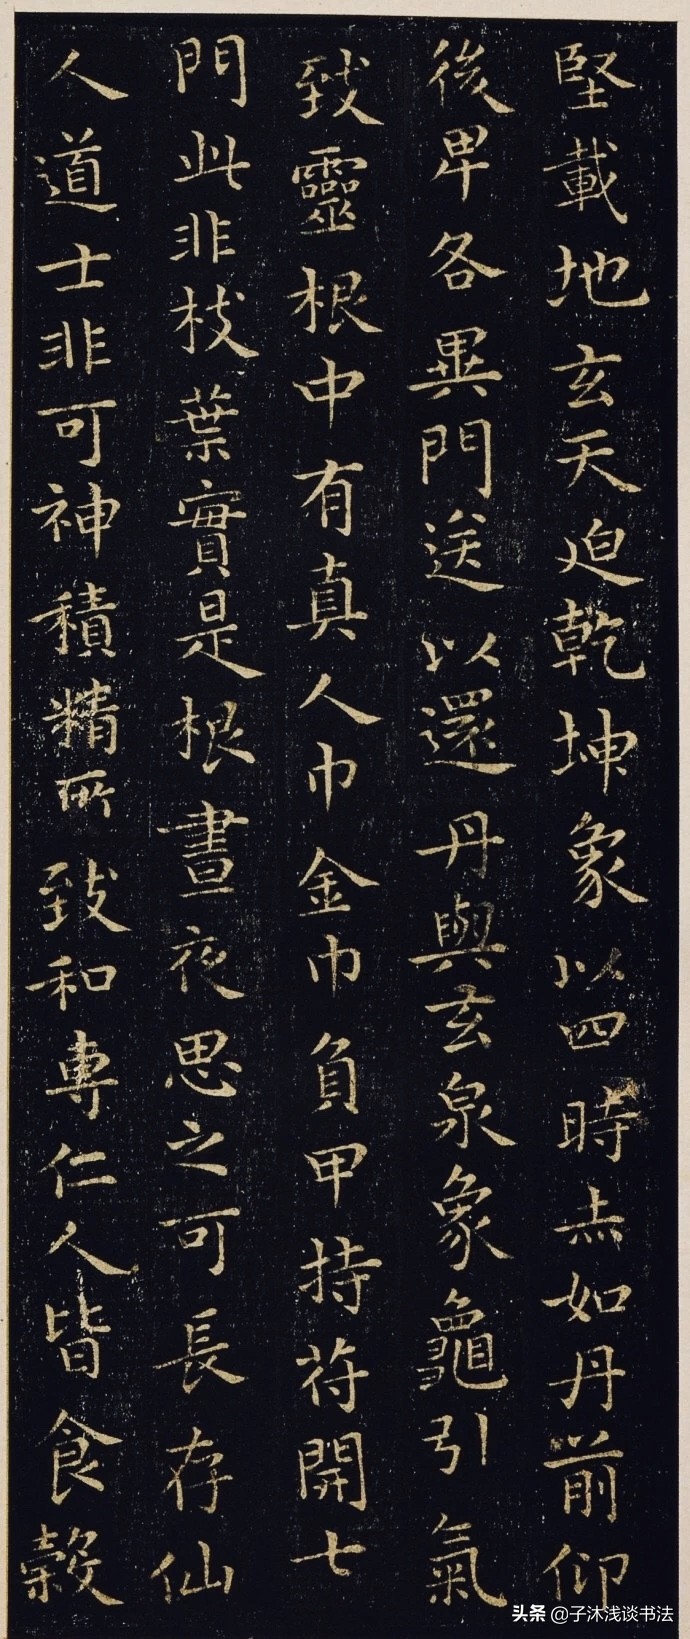 堅載地玄天迫乾坤象以四時赤如丹前仰
後卑各異門送以還丹與玄泉象龜引氣
致靈根中有真人巾金巾負甲持符開七
門此非枝葉實是根晝夜思之可長存仙
人道士非可神積精所致和專仁人皆食穀
头条 @子沐浅谈书法